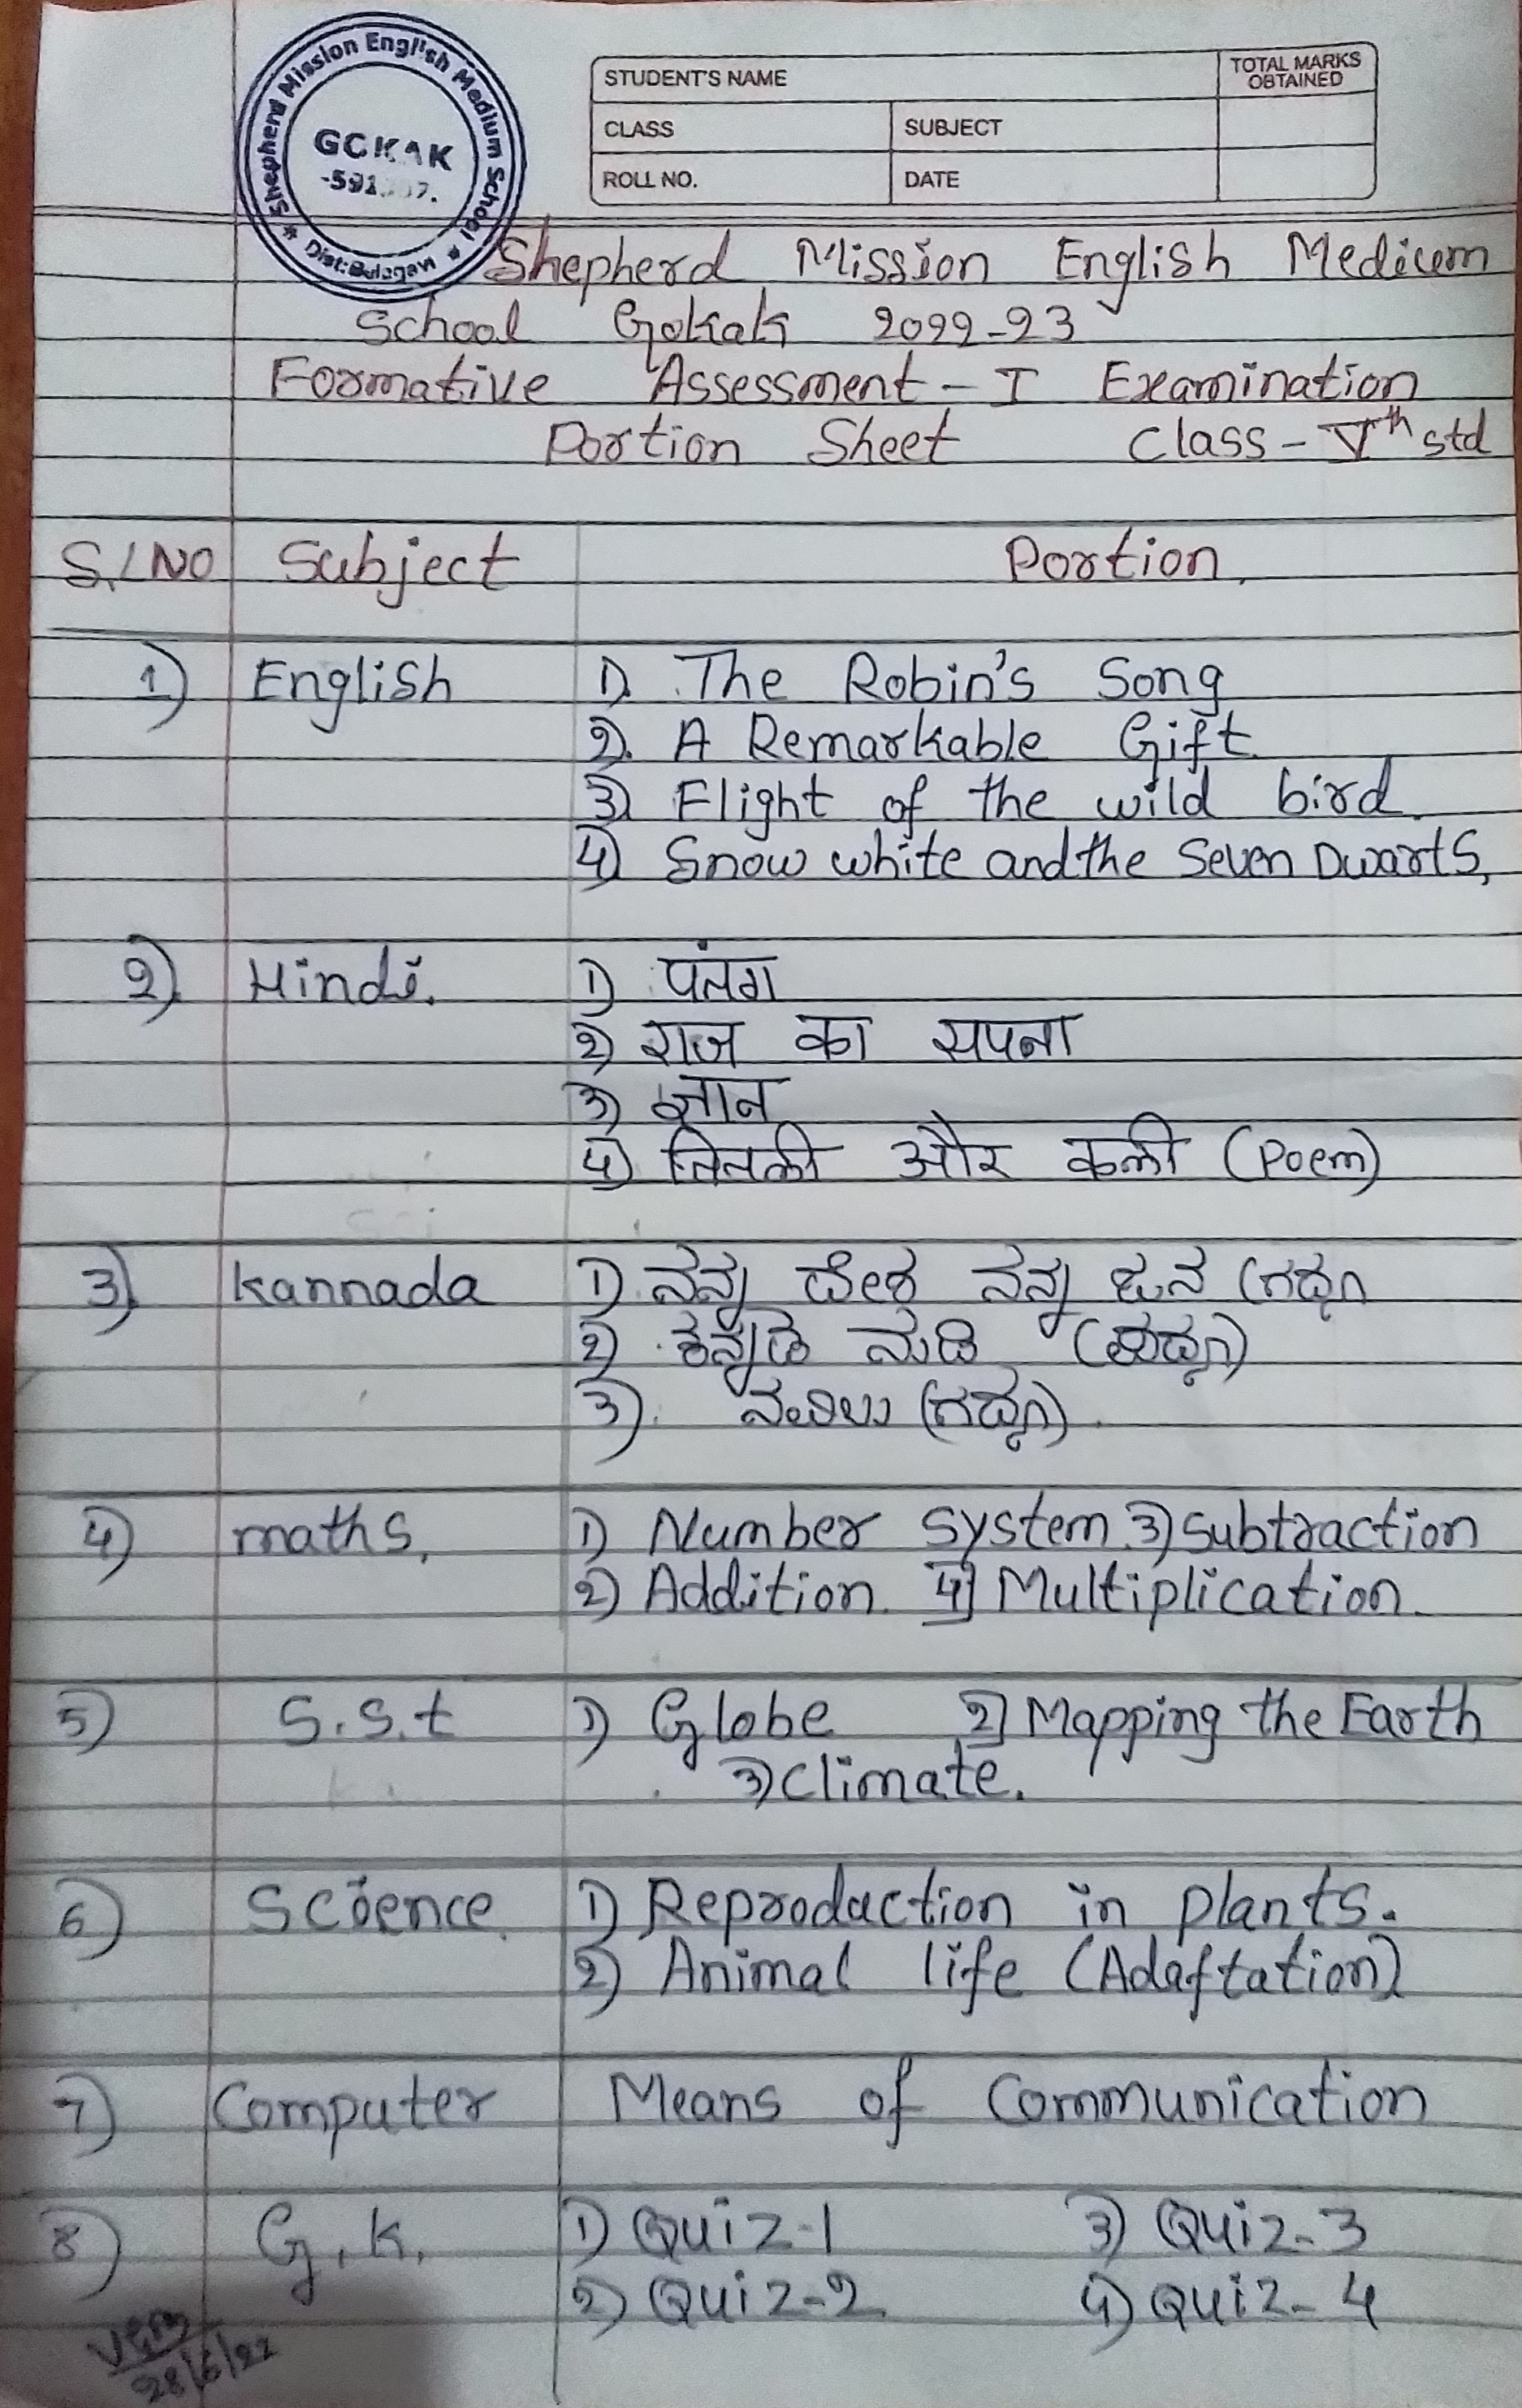 Shepherd Mission English Medium School
GOKAK
-591
Dist: Belagavi
STUDENT'S NAME
TOTAL MARKS OBTAINED
CLASS
SUBJECT
ROLL NO.
DATE
Shepherd Mission English Medium
School Gokak 2022-23
Formative Assessment - I Examination
Portion Sheet Class - Vth std
S.L NO Subject Portion.
1) English 1). The Robin's Song
2). A Remarkable Gift.
3) Flight of the wild bird.
4) Snow white and the Seven Dwarts,
2). Hindi. 1) पंतग
2) राज का सपना
3) ज्ञान
4) तितली और कली (Poem)
3). Kannada 1) ನನ್ನ ದೇಶ ನನ್ನ ಜನ (ಗದ್ಯ
2) ಕನ್ನಡ ನುಡಿ (ಪದ್ಯ)
3). ನವಿಲು (ಗದ್ಯ).
4) maths, 1) Number system. 3) subtraction
2) Addition. 4) Multiplication.
5) S.S.t 1) Globe 2) Mapping the Earth
3) Climate.
6) Science. 1) Reproduction in plants.
2) Animal life (Adaftation)
7) Computer Means of Communication
8) G.K. 1) Quiz-1 3) Quiz-3
2) Quiz-2 4) Quiz-4
28/6/22